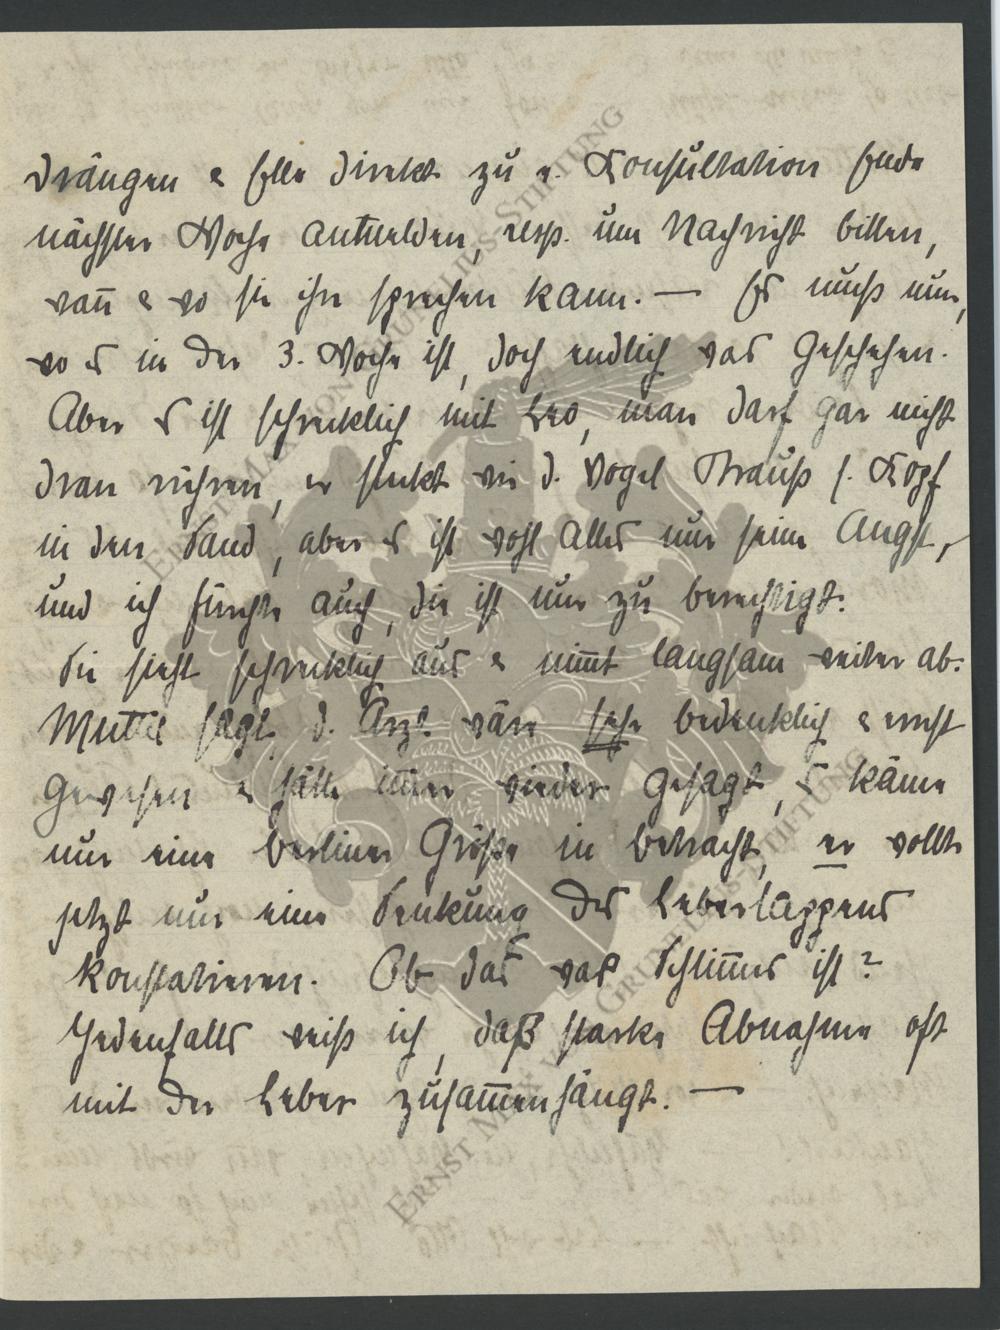 drängen & Elle direkt zu e. Konsultation Ende
nächster Woche anmelden, resp. um Nachricht bitten,
wañ & wo sie ihn sprechen kann. — Es muß nun,
wo es in der 3. Woche ist, doch endlich was geschehen.
Aber es ist schrecklich mit Leo, man darf gar nicht
dran rühren, er steckt wie d. Vogel Strauß s. Kopf
in den Sand, aber es ist wohl alles nur seine Angst,
und ich fürchte auch, die ist nur zu berechtigt.
Sie sieht schrecklich aus & nim̄t langsam weiter ab.
Muttel sagt, d. Arzt wäre sehr bedenklich & ernst
gewesen & hätte im̄er wieder gesagt, es käme
nur eine berliner Größe in betracht, er wollte
jetzt nur eine Senkung des Leberlappens
konstatieren. Ob das was Schlim̄es ist?
Jedenfalls weiß ich, daß starke Abnahme oft
mit der Leber zusam̄enhängt. —
ERNST MAX VON GRUNELIUS-STIFTUNG
ERNST MAX VON GRUNELIUS-STIFTUNG